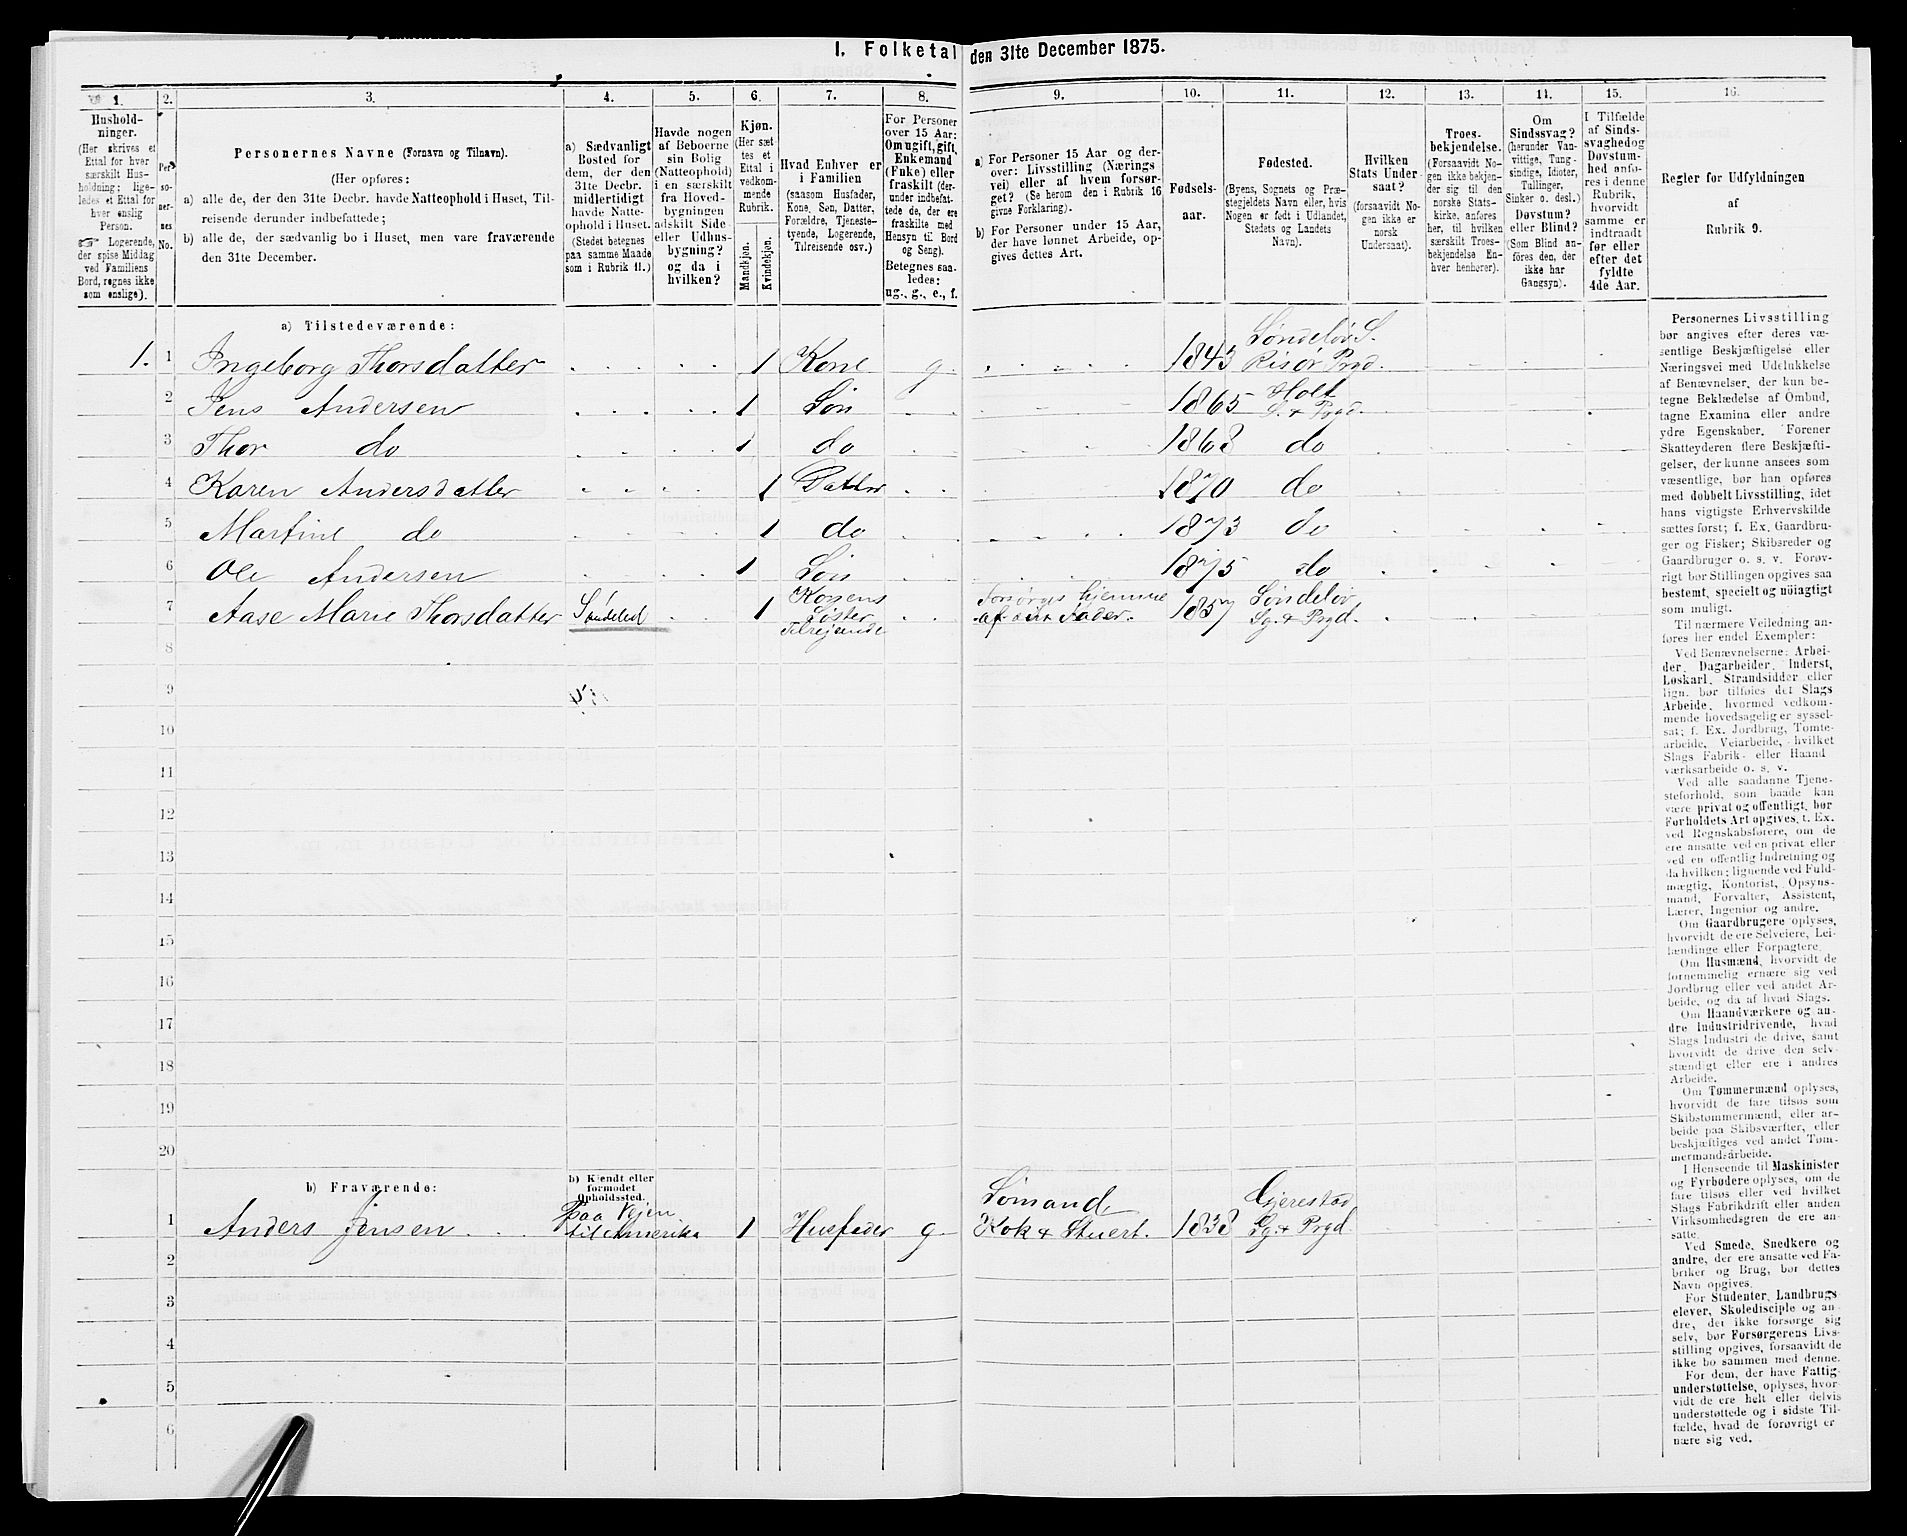 I. Folketal den 31te December 1875.
1. 2. 3. 4. 5. 6. 7. 8. 9. 10. 11. 12. 13. 14. 15. 16.
Hushold-
ninger.
(Her skrives et
Ettal for hver
særskilt Hus-
holdning; lige-
ledes et Ettal for
hver enslig
Person.
☞ Logerende,
der spise Middag
ved Familiens
Bord, regnes ikke
som enslige).
Per-
so-
ner-
nes
No.
Personernes Navne (Fornavn og Tilnavn).
(Her opføres:
a) alle de, der den 31te Decbr. havde Natteophold i Huset, Til-
reisende derunder indbefattede;
b) alle de, der sædvanlig bo i Huset, men vare fraværende
den 31te December.
a) Sædvanligt
Bosted for
dem, der den
31te Decbr.
midlertidigt
havde Natte-
ophold i Huset.
(Stedet betegnes
paa samme Maade
som i Rubrik 11.)
Havde nogen
af Beboerne
sin Bolig
(Natteophold)
i en særskilt
fra Hoved-
bygningen
adskilt Side-
eller Udhus-
bygning?
og da i
hvilken?
Kjøn.
(Her sæt-
tes et
Ettal i
vedkom-
mende
Rubrik.
Mandkjøn.
Kvindekjøn.
Hvad Enhver er
i Familien
(saasom Husfader,
Kone, Søn, Datter,
Forældre, Tjeneste-
tyende, Logerende,
Tilreisende osv.)
For Personer
over 15 Aar:
Om ugift, gift,
Enkemand
(Enke) eller
fraskilt (der-
under indbefat-
tede de, der ere
fraskilte med
Hensyn til Bord
og Seng).
Betegnes saa-
ledes:
ug., g., e., f.
a) For Personer 15 Aar og der-
over: Livsstilling (Nærings
vei) eller af hvem forsør-
get? (Se herom den i Rubrik 16
givne Forklaring).
b) For Personer under 15 Aar,
der have lønnet Arbeide, op-
gives dettes Art.
Fødsels-
aar.
Fødested.
(Byens, Sognets og Præ-
stegjeldets Navn eller, hvis
Nogen er født i Udlandet,
Stedets og Landets
Navn).
Hvilken
Stats Under-
saat?
(forsaavidt No-
gen ikke er
norsk
Undersaat).
Troes-
bekjendelse.
(Forsaavidt No-
gen ikke bekjen-
der sig til den
norske Stats-
kirke, anføres
her, til hvilken
særskilt Troes-
bekjendelse En-
hver henhører).
Om
Sindssvag?
(herunder Van-
vittige, Tung-
sindige, Idioter,
Tullinger,
Sinker o. desl.)
Døvstum?
eller Blind?
(Som Blind an-
føres den, der
ikke har
Gangsyn).
I Tilfælde
af Sinds-
svaghed og
Døvstum-
hed anfø-
res i denne
Rubrik,
hvorvidt
samme er
indtraadt
før eller
efter det
fyldte
4de Aar.
Regler for Udfyldningen
af
Rubrik 9.
a) Tilstedeværende:
1. 1 Ingeborg Thorsdatter 1 Kone g 1843 Søndeløv S. Risør Prgd.
2 Jens Andersen 1 Søn 1865 Holt S. & Prgd.
3 Thor do 1 do 1868 do
4 Karen Andersdatter 1 Datter 1870 do
5 Martine do 1 do 1873 do
6 Ole Andersen 1 Søn 1875 do
7 Aase Marie Thorsdatter Søndeled 1 Konens Søster Tilrejsende Forsørges hjemme af sin Fader. 1857 Søndeløv Sg. & Prgd.
8
9
10
11
12
13
14
15
16
17
18
19
20
b) Fraværende:
b) Kjendt eller
formodet
Opholdssted.
1 Anders Jensen paa Vejen til Amerika 1 Husfader g Sømand Kok & Stuert. 1838 Gjerestad Sg. & Prgd
2
3
4
5
6
Personernes Livsstilling
bør angives efter deres væ-
sentlige Beskjæftigelse eller
Næringsvei med Udelukkelse
af Benævnelser, der kun be-
tegne Beklædelse af Ombud,
tagne Examina eller andre
ydre Egenskaber. Forener
Skatteyderen flere Beskjæfti-
gelser, der kunne ansees som
væsentlige, bør han opføres
med dobbelt Livsstilling, idet
hans vigtigste Erhvervskilde
sættes først; f. Ex. Gaardbru-
ger og Fisker; Skibsreder og
Gaardbruger o. s. v. Forøv-
rigt bør Stillingen opgives saa
bestemt, specielt og nøiagtigt
som muligt.
Til nærmere Veiledning an-
føres her endel Exempler:
Ved Benævnelserne: Arbei-
der, Dagarbeider, Inderst,
Løskarl, Strandsidder eller
lign. bør tilføies det Slags
Arbeide, hvormed vedkom-
mende hovedsagelig er syssel-
sat; f. Ex. Jordbrug, Tomte-
arbeide, Veiarbeide, hvilket
Slags Fabrik- eller Haand
værksarbeide o. s. v.
Ved alle saadanne Tjene-
steforhold, som baade kan
være privat og offentligt, bør
Forholdets Art opgives, t. Ex.
ved Regnskabsførere, om de
ere ansatte ved en privat eller
ved en offentlig Indretning og
da hvilken; lignende ved Fuld-
mægtig, Kontorist, Opsyns-
mand, Forvalter, Assistent,
Lærer, Ingeniør og andre.
Om Gaardbrugere oplyses,
hvorvidt de ere Selveiere, Lei-
lændinge eller Forpagtere.
Om Husmænd, hvorvidt de
fornemmelig ernære sig ved
Jordbrug eller ved andet Ar-
beide, og da af hvad Slags.
Om Haandværkere og an-
dre Industridrivende, hvad
Slags Industri de drive, samt
hvorvidt de drive den selv-
stændigt eller ere i andres
Arbeide.
Om Tømmermænd oplyses,
hvorvidt de fare tilsøs som
Skibstømmermænd, eller ar-
beide paa Skibsværfter, eller
beskjæftiges ved andet Tøm-
mermandsarbeide.
I Henseende til Maskinister
og Fyrbødere oplyses, om de
fare tilsøs eller ved hvilket
Slags Fabrikdrift eller anden
Virksomhedsgren de ere an-
satte.
Ved Smede, Snedkere og
andre, der ere ansatte ved Fa-
briker og Brug, bør dettes
Navn opgives.
For Studenter, Landbrugs
elever, Skoledisciple og an-
dre, der ikke forsørge sig
selv, bør Forsørgerens Livs-
stilling opgives, forsaavidt de
ikke bo sammen med denne.
For dem, der have Fattig-
understøttelse, oplyses, hvor-
vidt de ere helt eller delvis
understøttede og i sidste Til-
fælde, hvad de forøvrigt er
nære sig ved.